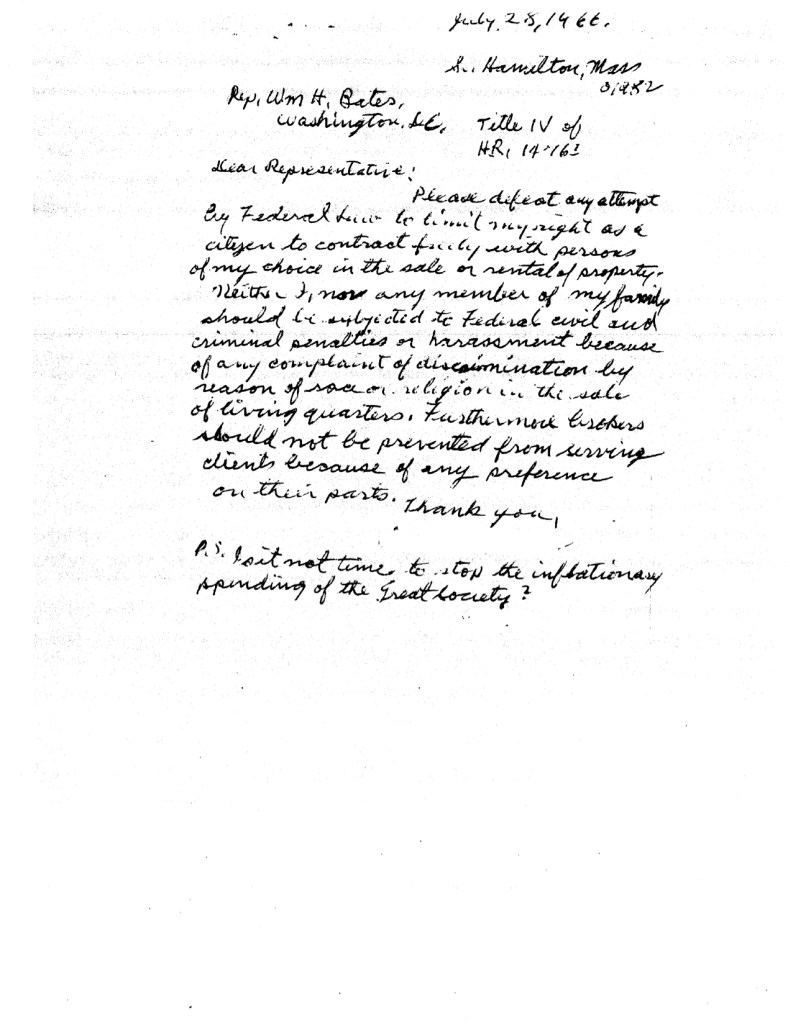 July 28, 1966.
S. Hamilton, Mass
01982
Rep. Wm H. Bates,
Washington, D.C.
Title IV of
H.R. 14765
Dear Representative:
Please defeat any attempt
by Federal Law to limit my right as a
citizen to contract freely with persons
of my choice in the sale or rental of property.
Neither I, nor any member of my family
should be subjected to Federal civil and
criminal penalties or harassment because
of any complaint of discrimination by
reason of race or religion in the sale
of living quarters. Furthermore brokers
should not be prevented from serving
clients because of any preference
on their parts. Thank you,
P.S. Is it not time to stop the inflationary
spending of the Great Society?